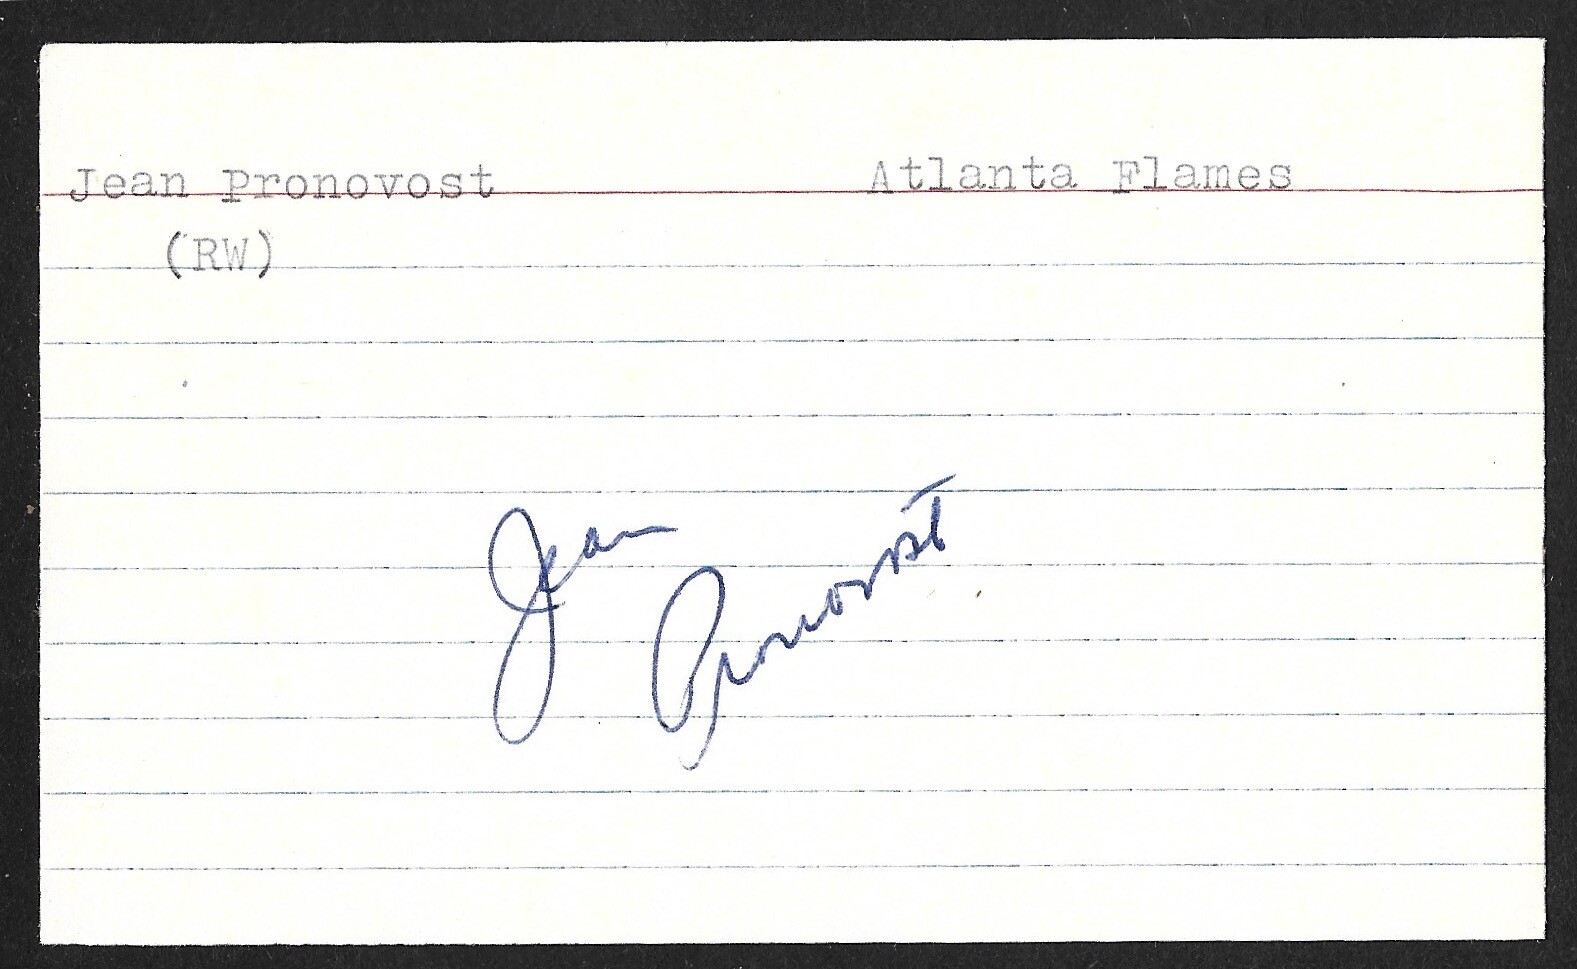 Jean Pronovost Atlanta Flames
(RW)
Jean
Pronovost